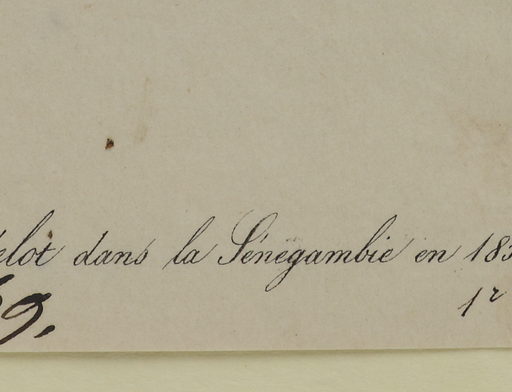 elot dans la Sénégambie en 183
69. 1r